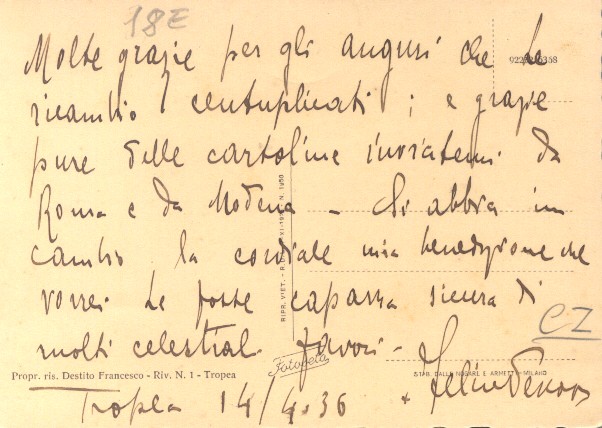 18E
Molte grazie per gli auguri che Le
ricambio centuplicati; e grazie
pure delle cartoline inviatemi da
Roma e da Modena - Si abbia in
cambio la cordiale mia benedizione che
vorrei Le fosse caparra sicura di
molti celestial favori -
CZ
Fotocelere
Propr. ris. Destito Francesco - Riv. N. 1 - Tropea
STAB. DALLE NOGARE E ARMETTI - MILANO
Tropea 14/4.36 + Felice
RIPR. VIET.